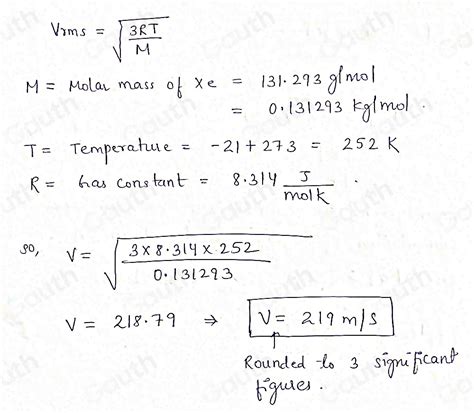 Vrms = √(3RT/M)
M = Molar mass of Xe = 131.293 g/mol
= 0.131293 kg/mol.
T = Temperature = -21 + 273 = 252 K
R = Gas constant = 8.314 J/molk.
so, V = √(3 x 8.314 x 252 / 0.131293)
V = 218.79 ⇒ V = 219 m/s
Rounded to 3 significant
figures.